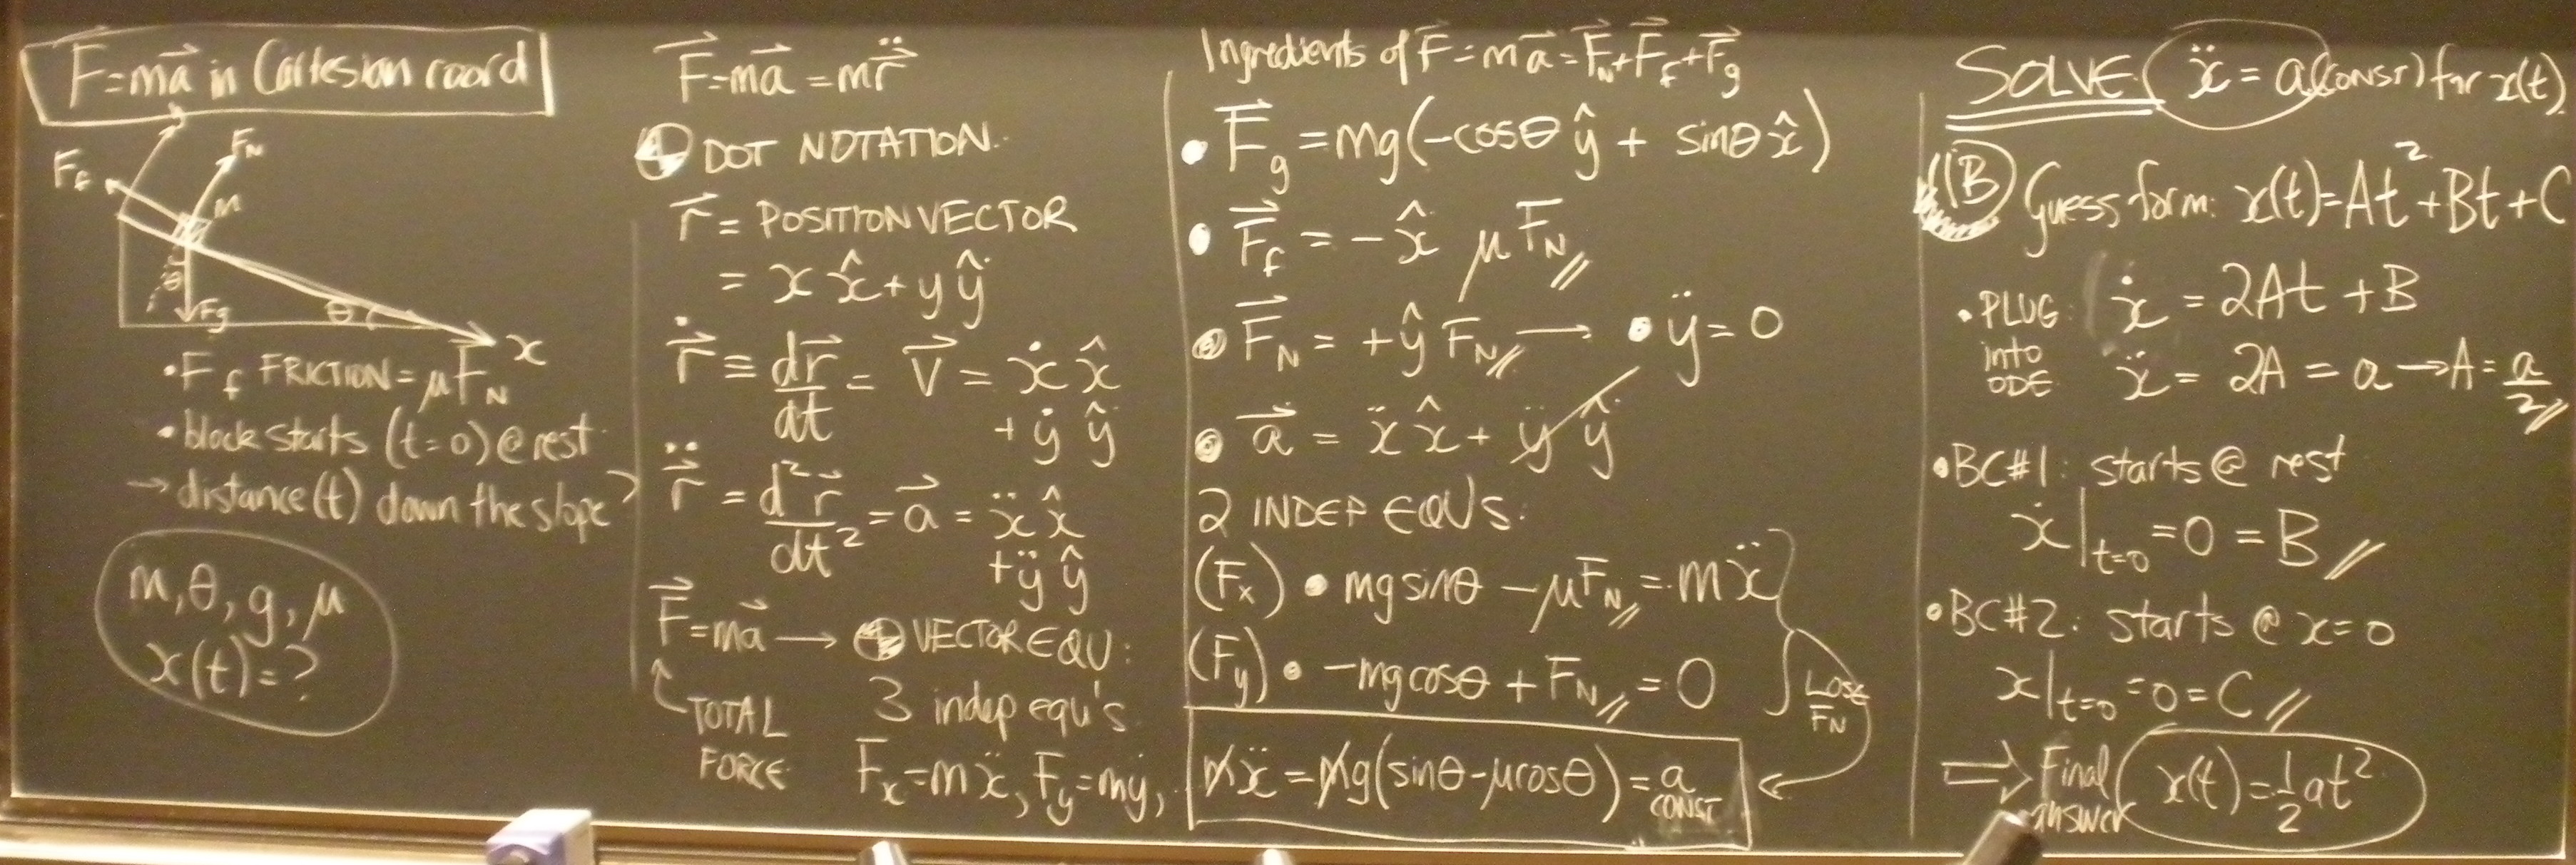 F⃗=ma⃗ in Cartesian coord
F_N
F_f
M
θ
F_g
θ
x
•F_f FRICTION = μF_N
•block starts (t=0) @ rest
→ distance(t) down the slope?
m, θ, g, μ
x(t)=?
F⃗=ma⃗ = mr⃗̈
DOT NOTATION.
r⃗ = POSITION VECTOR
= x x̂ + y ŷ
r⃗̇ ≡ dr⃗/dt = v⃗ = ẋ x̂
+ ẏ ŷ
r⃗̈ = d²r⃗/dt² = a⃗ = ẍ x̂
+ ÿ ŷ
F⃗=ma⃗ → VECTOR EQU:
↑ TOTAL FORCE
3 indep equ's
F_x=mẍ, F_y=mÿ,
Ingredients of F⃗ = ma⃗ = F⃗_N+F⃗_f+F⃗_g
• F⃗_g = mg(-cosθ ŷ + sinθ x̂)
• F⃗_f = - x̂ μ F_N
• F⃗_N = +ŷ F_N → • ÿ = 0
• a⃗ = ẍ x̂ + ÿ ŷ
2 INDEP EQUS:
(F_x) • mg sinθ - μF_N = mẍ
(F_y) • -mg cosθ + F_N = 0
LOSE
F_N
mẍ = mg(sinθ-μcosθ) = a
CONST
SOLVE ẍ = a (CONST) for x(t)
(B) Guess form: x(t)=At²+Bt+C
• PLUG into ODE
ẋ = 2At + B
ẍ = 2A = a → A = a/2
•BC#1: starts @ rest
ẋ|t=0 = 0 = B
•BC#2: starts @ x=0
x|t=0 = 0 = C
⇒ Final answer x(t) = ½at²